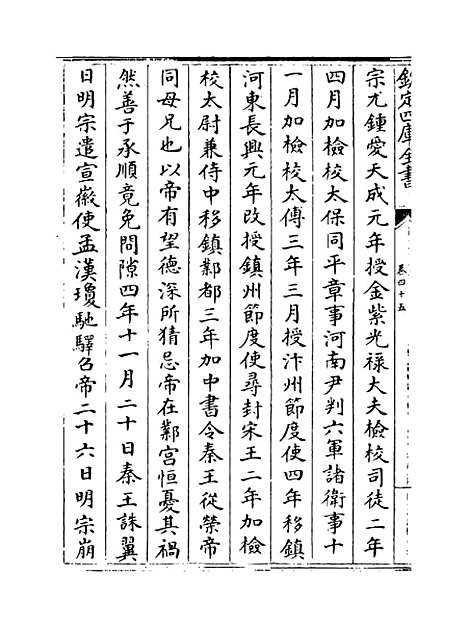 欽定四庫全書
卷四十五
宗尤鍾愛天成元年授金紫光祿大夫檢校司徒二年
四月加檢校太保同平章事河南尹判六軍諸衛事十
一月加檢校太傅三年三月授汴州節度使四年移鎮
河東長興元年改授鎮州節度使尋封宋王二年加檢
校太尉兼侍中移鎮鄴都三年加中書令秦王從榮帝
同母兄也以帝有望德深所猜忌帝在鄴宮恒憂其禍
然善于承順竟免間隙四年十一月二十日秦王誅翼
日明宗遣宣徽使孟漢瓊馳驛召帝二十六日明宗崩